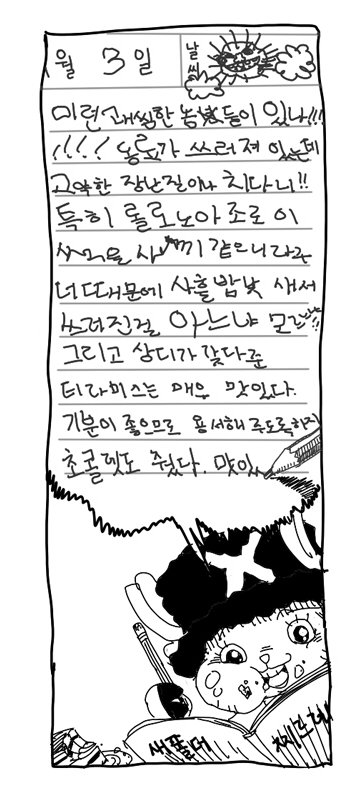 월 3 일 날씨
미련 고 한 놈 들이 있나!!!
!!!! 동료가 쓰러져 있는데
고약한 장난질이나 치다니!!
특히 롤로노아 조로 이
같으니라구
너 때문에 사흘 밤낮 새서
쓰러진걸 아느냐
그리고 상디가 갖다준
티라미스는 매우 맛있다.
기분이 좋으므로 용서해주도록하지
초콜렛도 줬다. 맛있